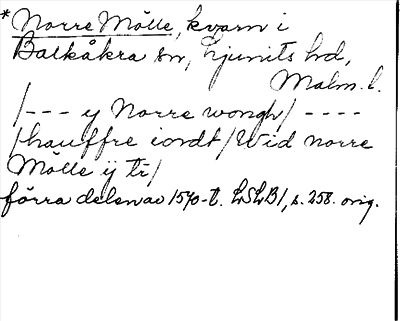 *Norre Mölle, kvarn i
Balkåkra sn, Ljunits hd,
Malm. l.
/--- y Norre wongh/ ----
/hauffre iordt/Wid norre
Mölle ÿ tɩ̄/
förra delen av 1570-t. LSLB1, s. 258. orig.